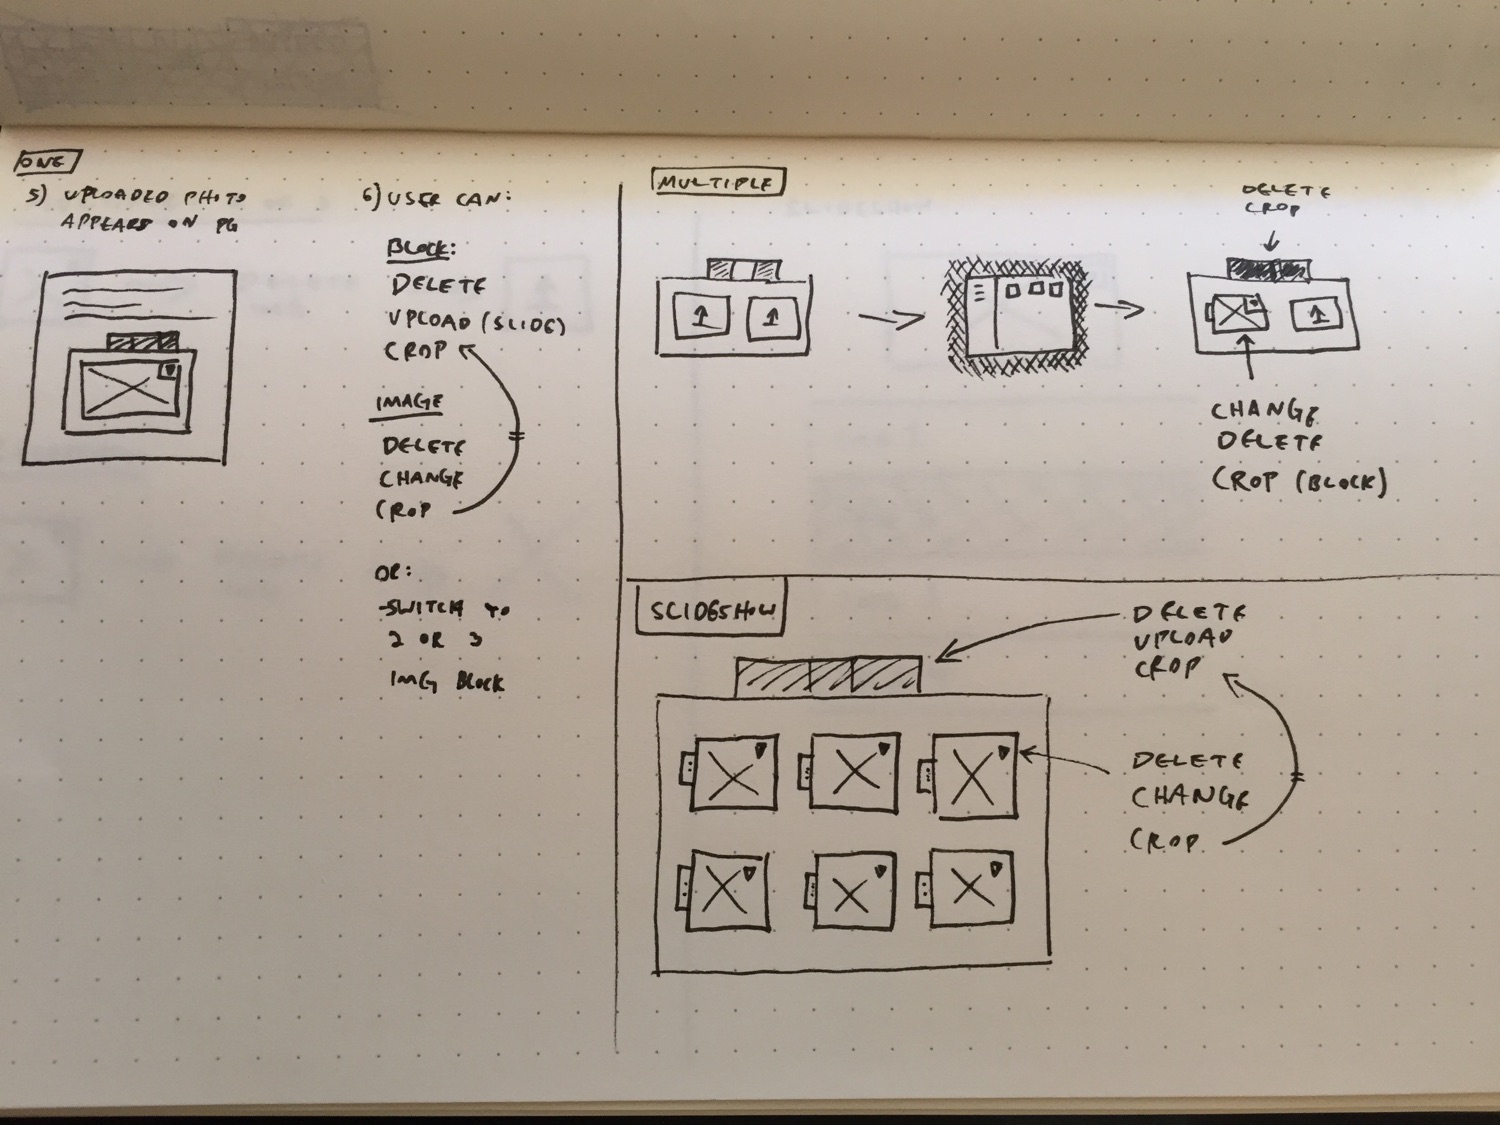 ONE
5) UPLOADED PHOTO
APPEARS ON PG
6) USER CAN:
BLOCK:
DELETE
UPLOAD (SLIDE)
CROP
IMAGE
DELETE
CHANGE
CROP
OR:
-SWITCH TO
2 OR 3
IMG BLOCK
MULTIPLE
DELETE
CROP
CHANGE
DELETE
CROP (BLOCK)
SLIDESHOW
DELETE
UPLOAD
CROP
DELETE
CHANGE
CROP